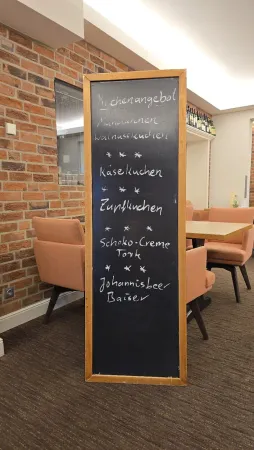 Kuchenangebot
Marmorkuchen
Walnusskuchen
* * *
Käsekuchen
* * *
Zupfkuchen
* * *
Schoko-Creme
Torte
* * *
Johannisbeer
Baiser